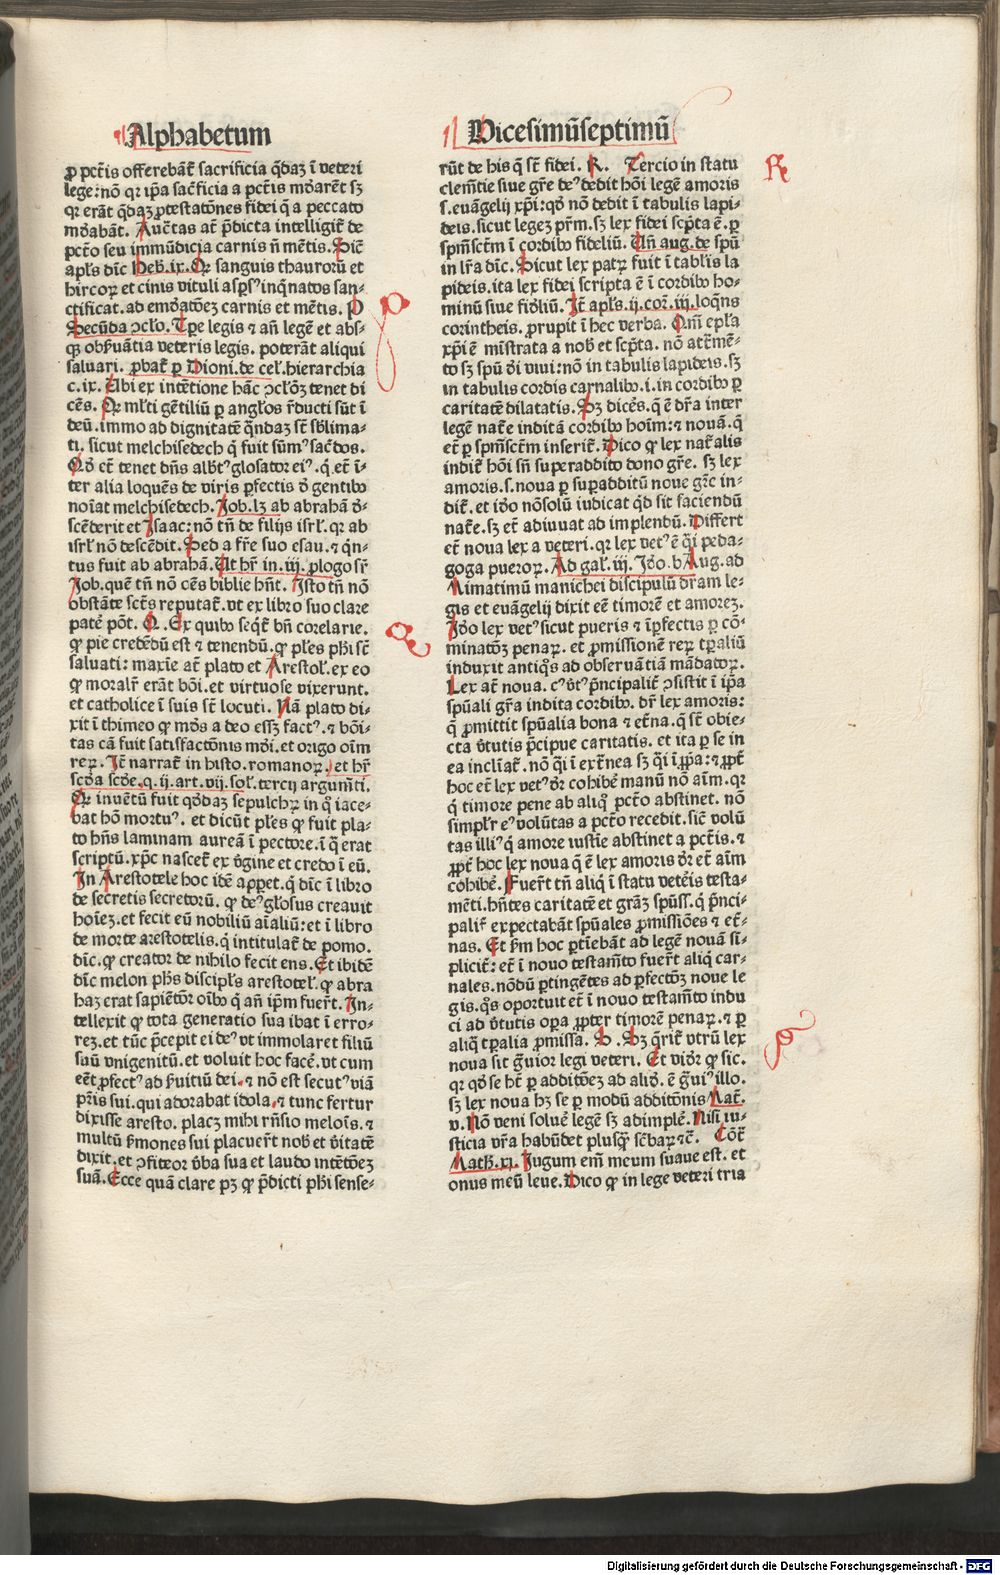 Alphabetum
ꝓ pctīs offerebāt᷑ sacrificia q̄daꝫ ī veteri
lege: nō qꝛ ip̄a sac̄ficia a pctīs mūdarēt sꝫ
qꝛ erāt q̄daꝫ ꝓtestatōnes fidei q̄ a peccato
mūdabāt. Auc̄tas at᷑ p̄dicta intelligit᷑ de
pctō seu immūdicia carnis nō mētis. Sic̄
apl̄s dīc Heb̄. ix. Qꝛ sanguis thaurorū et
hircoꝝ et cinis vituli asp̄sꝰ inq̄natos san⸗
ctificat. ad emūdatōeꝫ carnis et mētis. P
Secūda ↄclō. Tp̄e legis ⁊ an̄ legē et abs⸗
qꝫ obẜuātia veteris legis. poterāt aliqui
saluari. ꝓbat᷑ ꝑ Dioni. de cel̄. hierarchia
c. ix. Ubi ex intētione hāc ↄclōꝫ tenet di
cēs. Qꝛ ml̄ti gētiliū ꝑ angl̄os r̄ducti sūt ī
deū. immo ad dignitatē q̄ndaꝫ sūt sb̄lima⸗
ti. sicut melchisedech q̄ fuit sūmꝰ sac̄dos.
Qd̄ et᷑ tenet dn̄s alb̄tꝰ glosator eiꝰ. q̄ et᷑ ī⸗
ter alia loquēs de viris ꝑfectis d̄ gentibꝰ
noīat melchisedech. Job. lꝫ ab abrahā d̄⸗
scēderit et Isaac: nō tn̄ de filijs isrl̄. qꝛ ab
isrl̄ nō descēdit. Sed a fr̄e suo esau. ⁊ q̄n⸗
tus fuit ab abrahā. Ut hr̄ in. iij. ꝓlogo sr̄
Job. quē tn̄ nō cēs biblie hn̄t. Isto tn̄ nō
obstāte sctūs reputat᷑. vt ex libro suo clare
patē pōt. Q. Ex quibꝰ seqt᷑ bn̄ corelarie.
ꝙ pie credēdū est ⁊ tenendū. ꝙ pl̄es ph̄i sūt
saluati: maxīe at᷑ plato et Arestol̄. ex eo
ꝙ moralr̄ erāt bōi. et virtuose vixerunt.
et catholice ī suis sūt locuti. Nā plato di⸗
xit ī thimeo ꝙ mūds a deo essꝫ factꝰ. ⁊ bōi⸗
tas cā fuit satisfactōnis mūdi. et origo oīm
reꝝ. Itē narrat᷑ in histo. romanoꝝ. et hr̄
scd̄a scd̄e. q. ij. art. vij. sol̄. tercij argumēti.
Qꝛ inuētū fuit qd̄daꝫ sepulchꝝ in q̄ iace⸗
bat hō mortuꝰ. et dicūt pl̄es ꝙ fuit pla⸗
to hn̄s laminam aureā ī pectore. ī q̄ erat
scriptū. xp̄c nascet᷑ ex v̄gine et credo ī eū.
In Arestotele hoc idē apꝑet. q̄ dīc ī libro
de secretis secretorū. ꝙ deꝰ glōsus creauit
hoīeꝫ. et fecit eū nobiliū aīaliū: et ī libro
de morte arestotelis. q̄ intitulat᷑ de pomo.
dīc. ꝙ creator de nihilo fecit ens. Et ibidē
dīc melon ph̄s discipl̄s arestotel̄. ꝙ abra
haꝫ erat sapiētōr oībꝰ q̄ an̄ ip̄m fuer̄t. In⸗
tellexit ꝙ tota generatio sua ibat ī erro⸗
reꝫ. et tūc p̄cepit ei deꝰ vt immolaret filiū
suū vnigenitū. et voluit hoc facē. vt cum
eēt ꝑfectꝰ ad ẜuitiū dei. ⁊ nō est secutꝰ viā
pr̄is sui. qui adorabat idola. ⁊ tunc fertur
dixisse aresto. placꝫ mihi rn̄sio meloīs. ⁊
multū ẜmones sui placuer̄t nob̄ et v̄itatē
dixit. et ↄfiteor v̄ba sua et laudo intētōeꝫ
suā. Ecce quā clare pꝫ ꝙ p̄dicti ph̄i sense⸗
P
Q
Vicesimūseptimū
rūt de his q̄ sūt fidei. R. Tercio in statu
clemētie siue gr̄e deꝰ dedit hōi legē amoris
s. euāgelij xp̄i: qd̄ nō dedit ī tabulis lapi⸗
deis. sicut legeꝫ pr̄m. sꝫ lex fidei scp̄ta ē. ꝑ
spm̄sctm̄ ī cordibꝰ fideliū. Un̄ aug. de spū
in lr̄a dīc. Sicut lex patꝝ fuit ī tabl̄is la
pideis. ita lex fidei scripta ē ī cordibꝰ ho⸗
minū siue fideliū. Itē apl̄s. ij. cor̄. iij. loqn̄s
corintheis. ꝓrupit ī hec verba. Qm̄ epl̄a
xp̄i ē mīstrata a nob̄ et scp̄ta. nō at᷑mē⸗
to sꝫ spū dei viui: nō in tabulis lapideis. sꝫ
in tabulis cordis carnalibꝰ. i. in cordibꝰ ꝑ
caritatē dilatatis. Sꝫ dicēs. q̄ ē dr̄a inter
legē nat᷑e inditā cordibꝰ hoīm: ⁊ nouā. q̄
et᷑ ꝑ spm̄sctm̄ inserit᷑. Dico ꝙ lex nat᷑alis
indit᷑ hōi sn̄ superaddito dono gr̄e. sꝫ lex
amoris. s. noua ꝑ suꝑadditū noue gr̄e in⸗
dit᷑. et iō nōsolū iudicat qd̄ sit faciendū
nat᷑e. sꝫ et᷑ adiuuat ad implendū. Differt
et᷑ noua lex a veteri. qꝛ lex vetꝰ ē q̄i peda⸗
goga pueroꝝ. Ad gal̄. iij. Iō. b Aug. ad
Aimatimū manichei discipulū dr̄am le⸗
gis et euāgelij dixit eē timorē et amoreꝫ.
Iō lex vetꝰ sicut pueris ⁊ īꝑfectis ꝑ cō⸗
minatōꝫ penaꝝ. et ꝓmissionē reꝝ tꝑaliū
induxit antiqs̄ ad obseruātiā mādatoꝝ.
Lex at᷑ noua. cꝰ v̄tꝰ p̄ncipalit᷑ ↄsistit ī ip̄a
spūali gr̄a indita cordibꝰ. dr̄ lex amoris:
q̄ ꝓmittit spūalia bona ⁊ et᷑na. q̄ sūt obie⸗
cta v̄tutis p̄cipue caritatis. et ita ꝑ se in
ea inclīat᷑. nō q̄i ī ext᷑nea sꝫ q̄i ī ꝓp̄a: ⁊ ꝓpt᷑
hoc et᷑ lex vetꝰ dr̄ cohibē manū nō aīm. qꝛ
q̄ timore pene ab aliq̄ pctō abstinet. nō
simpl̄r eꝰ volūtas a pctō recedit. sic̄ volū
tas illiꝰ q̄ amore iustie abstinet a pctīs. ⁊
ꝓpt᷑ hoc lex noua q̄ ē lex amoris dr̄ et᷑ aīm
cohibē. Fuer̄t tn̄ aliq̄ ī statu vetēis testa⸗
mēti. hn̄tes caritatē et gr̄aꝫ spūss. q̄ p̄nci⸗
palit᷑ expectabāt spūales ꝓmissiōes ⁊ et᷑⸗
nas. Et ẜm hoc ꝑtīebāt ad legē nouā si⸗
plicit᷑: et᷑ ī nouo testamēto fuer̄t aliq̄ car⸗
nales. nōdū ꝑtingētes ad ꝑfectōꝫ noue le
gis. qs̄ oportuit et᷑ ī nouo testamēto indu
ci ad v̄tutis oꝑa ꝓpter timorē penaꝝ. ⁊ ꝑ
aliq̄ tꝑalia ꝓmissa. S. Sꝫ q̄rit᷑ vtrū lex
noua sit gr̄auior legi veteri. Et vid̄r ꝙ sic.
qꝛ qd̄ se ht᷑ ꝑ additōeꝫ ad aliud̄. ē gr̄auiꝰ illo.
sꝫ lex noua hꝫ se ꝑ modū additōnis Mat᷑.
v. Nō veni soluē legē sꝫ adimplē. Nisi iu⸗
sticia vr̄a habūdet plusqꝫ scr̄ibaꝝ ⁊c̄. Cōt᷑
Math. xi. Iugum em̄ meum suaue est. et
onus meū leue. Dico ꝙ in lege veteri tria
R
S
Digitalisierung gefördert durch die Deutsche Forschungsgemeinschaft - DFG